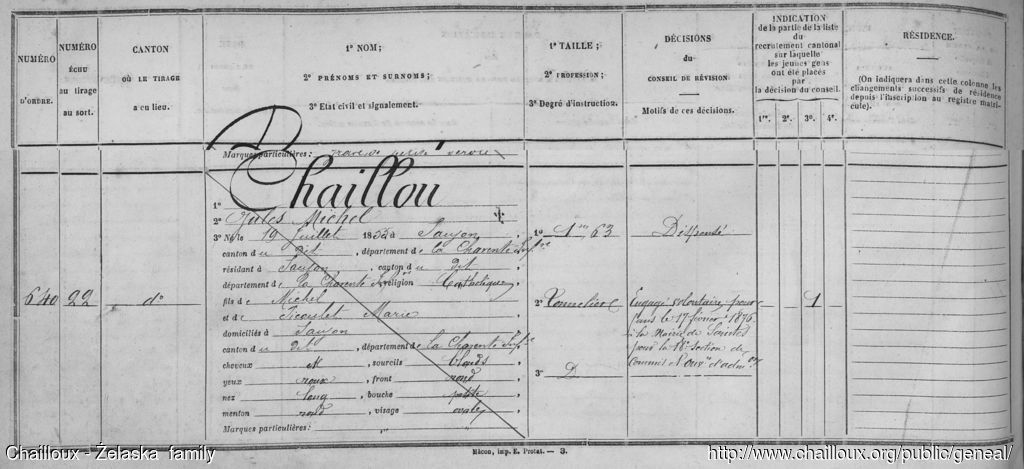 NUMÉRO D'ORDRE.
NUMÉRO ÉCHU au tirage au sort.
CANTON OÙ LE TIRAGE a eu lieu.
1° NOM;
2° PRÉNOMS ET SURNOMS;
3° Etat civil et signalement.
1° TAILLE;
2° PROFESSION;
3° Degré d'instruction.
DÉCISIONS
du
CONSEIL DE RÉVISION
Motifs de ces décisions.
INDICATION
de la partie de la liste
du
recrutement cantonal
sur laquelle
les jeunes gens
ont été placés
par
la décision du conseil.
1re. 2e. 3e. 4e.
RÉSIDENCE.
(On indiquera dans cette colonne les
changements successifs de résidence
depuis l'inscription au registre matri-
cule).
Marques particulières :
1° Chaillou
2° Jules Michel
3° Né le 19 Juillet 1855 à Saujon
canton du dit, département de la Charente Infre
résidant à Saujon, canton du dit
département de la Charente Infre, religion Catholique
fils de Michel
et de Marie
domiciliés à Saujon
canton du dit, département de La Charente Infre
cheveux, sourcils blonds
yeux roux, front rond
nez long, bouche petite
menton rond, visage ovale
Marques particulières : "
640 22 d°
1° 1m 63
2° Tonnelier
3° D
Dispensé
Engagé volontaire pour
5 ans le 17 février 1876
à la Mairie de Saintes
pour la 18e section de
Commis et ouvrs d'admon
1
Mâcon, imp. E. Protat. — 3.
Chailloux - Żelaska family
http://www.chailloux.org/public/geneal/